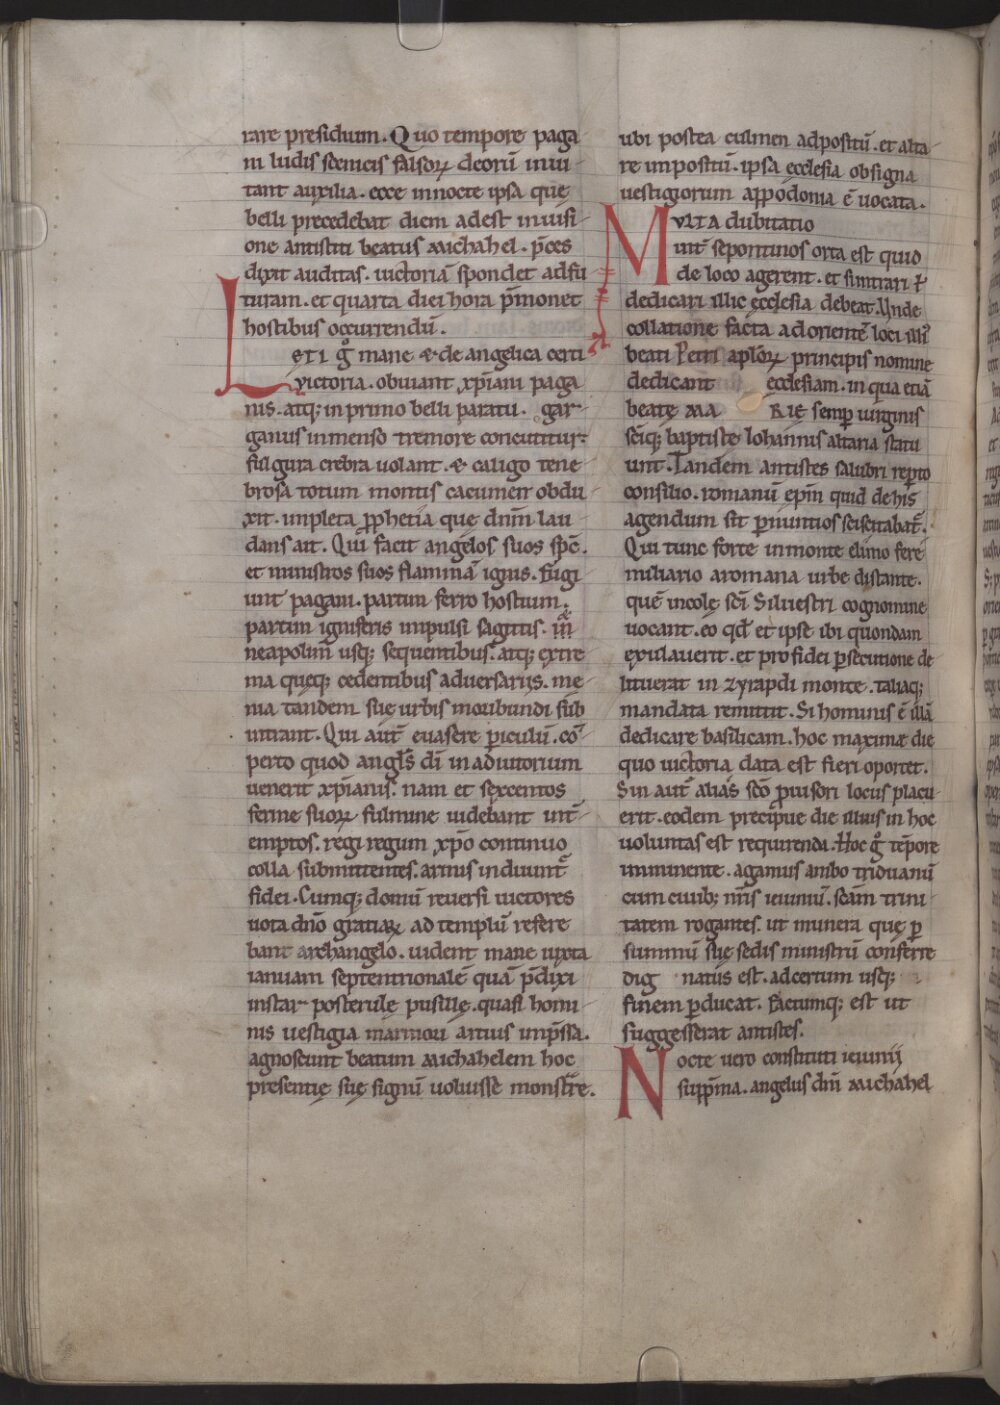 rare presidium. Quo tempore paga
ni ludis scenicis falsoꝝ deorū inui
tant auxilia. ecce innocte ipsa quę
belli precedebat diem adest inuisi
one antistiti beatus michahel. p̄ces
dixit auditas. uictoriā spondet adfu
turam. et quarta diei hora p̄monet
hostibus occurrendū.
LETI gͦ mane & de angelica certi
uictoria. obuiant xp̄iani paga
nis. atq; in primo belli paratu. gar
ganus inmenso tremore concutitur.
fulgura crebra uolant. & caligo tene
brosa totum montis cacumen obdu
xit. impleta p̱phetia que dnm̄ lau
dans ait. Qui facit angelos suos spc̄.
et ministros suos flammā ignis. Fugi
unt pagani. partim ferro hostium.
partim igniferis impulsi sagittis.
neapolim̄ usq; sequentibus. atq; extre
ma queq; cedentibus aduersariis. mę
nia tandem suę urbis moribundi sub
intrant. Qui aut̄ euasere ꝑiculū. cō
perto quod angl̄s dī inadiutorium
uenerit xp̄ianis. nam et sexcentos
ferme suoꝝ fulmine uidebant int̄
emptos. regi regum xp̄o continuo
colla submittentes. armis induunt᷑
fidei. Cumq; domū reuersi uictores
uota dnō gratiaꝝ ad templū refere
bant archangelo. uident mane iuxta
ianuam septentrionalē quā p̄dixi
instar posterulę pusillę. quasi homi
nis uestigia marmori artius imp̄ssa.
agnoscunt beatum michahelem hoc
presentię suę signū uoluisse monstrare.
ubi postea culmen adpositū. et alta
re impositū. ipsa ecclesia obsigna
uestigiorum appodonia ē uocata.
MVLTA dubitatio
int̄ sepontinos orta est quid
de loco agerent. et si intrari ł
dedicari illic ecclesia debeat. Unde
collatione facta ad orientē loci illi᷒
beati Petri aplōꝝ principis nomine
dedicant ecclesiam. in qua etiā
beatę MA RIĘ semꝑ uirginis
scīq; baptistę Iohannis altaria statu
unt. Tandem antistes salubri reꝑto
consilio. romanū epm̄ quid de his
agendum sit ꝑ nuntios sciscitabat᷑.
Qui tunc forte inmonte elimo fere
miliario aromana urbe distante.
quē incolę scī Siluestri cognomine
uocant. eo qd̄ et ipse ibi quondam
exulauerit. et pro fidei ꝑsecutione de
lituerat in zyrapdi monte. taliaq;
mandata remittit. Si hominis ē illā
dedicare basilicam. hoc maxime die
quo uictoria data est fieri oportet.
Sin aut̄ alias scō prouisori locus placu
erit. eodem precipue die illius in hoc
uoluntas est requirenda. Hoc gͦ tēpore
imminente. agamus ambo triduanū
cum ciuib; nr̄is ieiuniū. scam̄ trini
tatem rogantes. ut munera quę ꝑ
summū suę sedis ministrū conferre
dig natus est. adcertum usq;
finem ꝑducat. Factumq; est ut
suggesserat antistes.
Nocte uero constituti ieiunij
supp̄ma. angelus dn̄i michahel